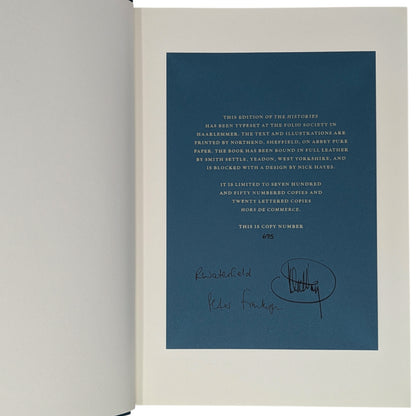 THIS EDITION OF THE HISTORIES
HAS BEEN TYPESET AT THE FOLIO SOCIETY IN
HAARLEMMER. THE TEXT AND ILLUSTRATIONS ARE
PRINTED BY NORTHEND, SHEFFIELD, ON ABBEY PURE
PAPER. THE BOOK HAS BEEN BOUND IN FULL LEATHER
BY SMITH SETTLE, YEADON, WEST YORKSHIRE, AND
IS BLOCKED WITH A DESIGN BY NICK HAYES.
IT IS LIMITED TO SEVEN HUNDRED
AND FIFTY NUMBERED COPIES AND
TWENTY LETTERED COPIES
HORS DE COMMERCE.
THIS IS COPY NUMBER
RWaterfield
Peter Frankopan